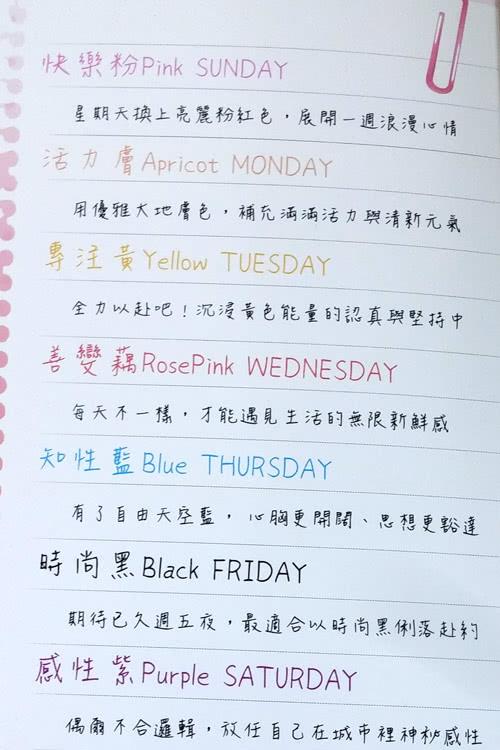 快樂粉Pink SUNDAY
星期天換上亮麗粉紅色，展開一週浪漫心情
活力膚Apricot MONDAY
用優雅大地膚色，補充滿滿活力與清新元氣
專注黃Yellow TUESDAY
全力以赴吧！沉浸黃色能量的認真與堅持中
善變藕RosePink WEDNESDAY
每天不一樣，才能遇見生活的無限新鮮感
知性藍Blue THURSDAY
有了自由天空藍，心胸更開闊、思想更豁達
時尚黑Black FRIDAY
期待已久週五夜，最適合以時尚黑俐落赴約
感性紫Purple SATURDAY
偶爾不合邏輯，放任自己在城市裡神秘感性